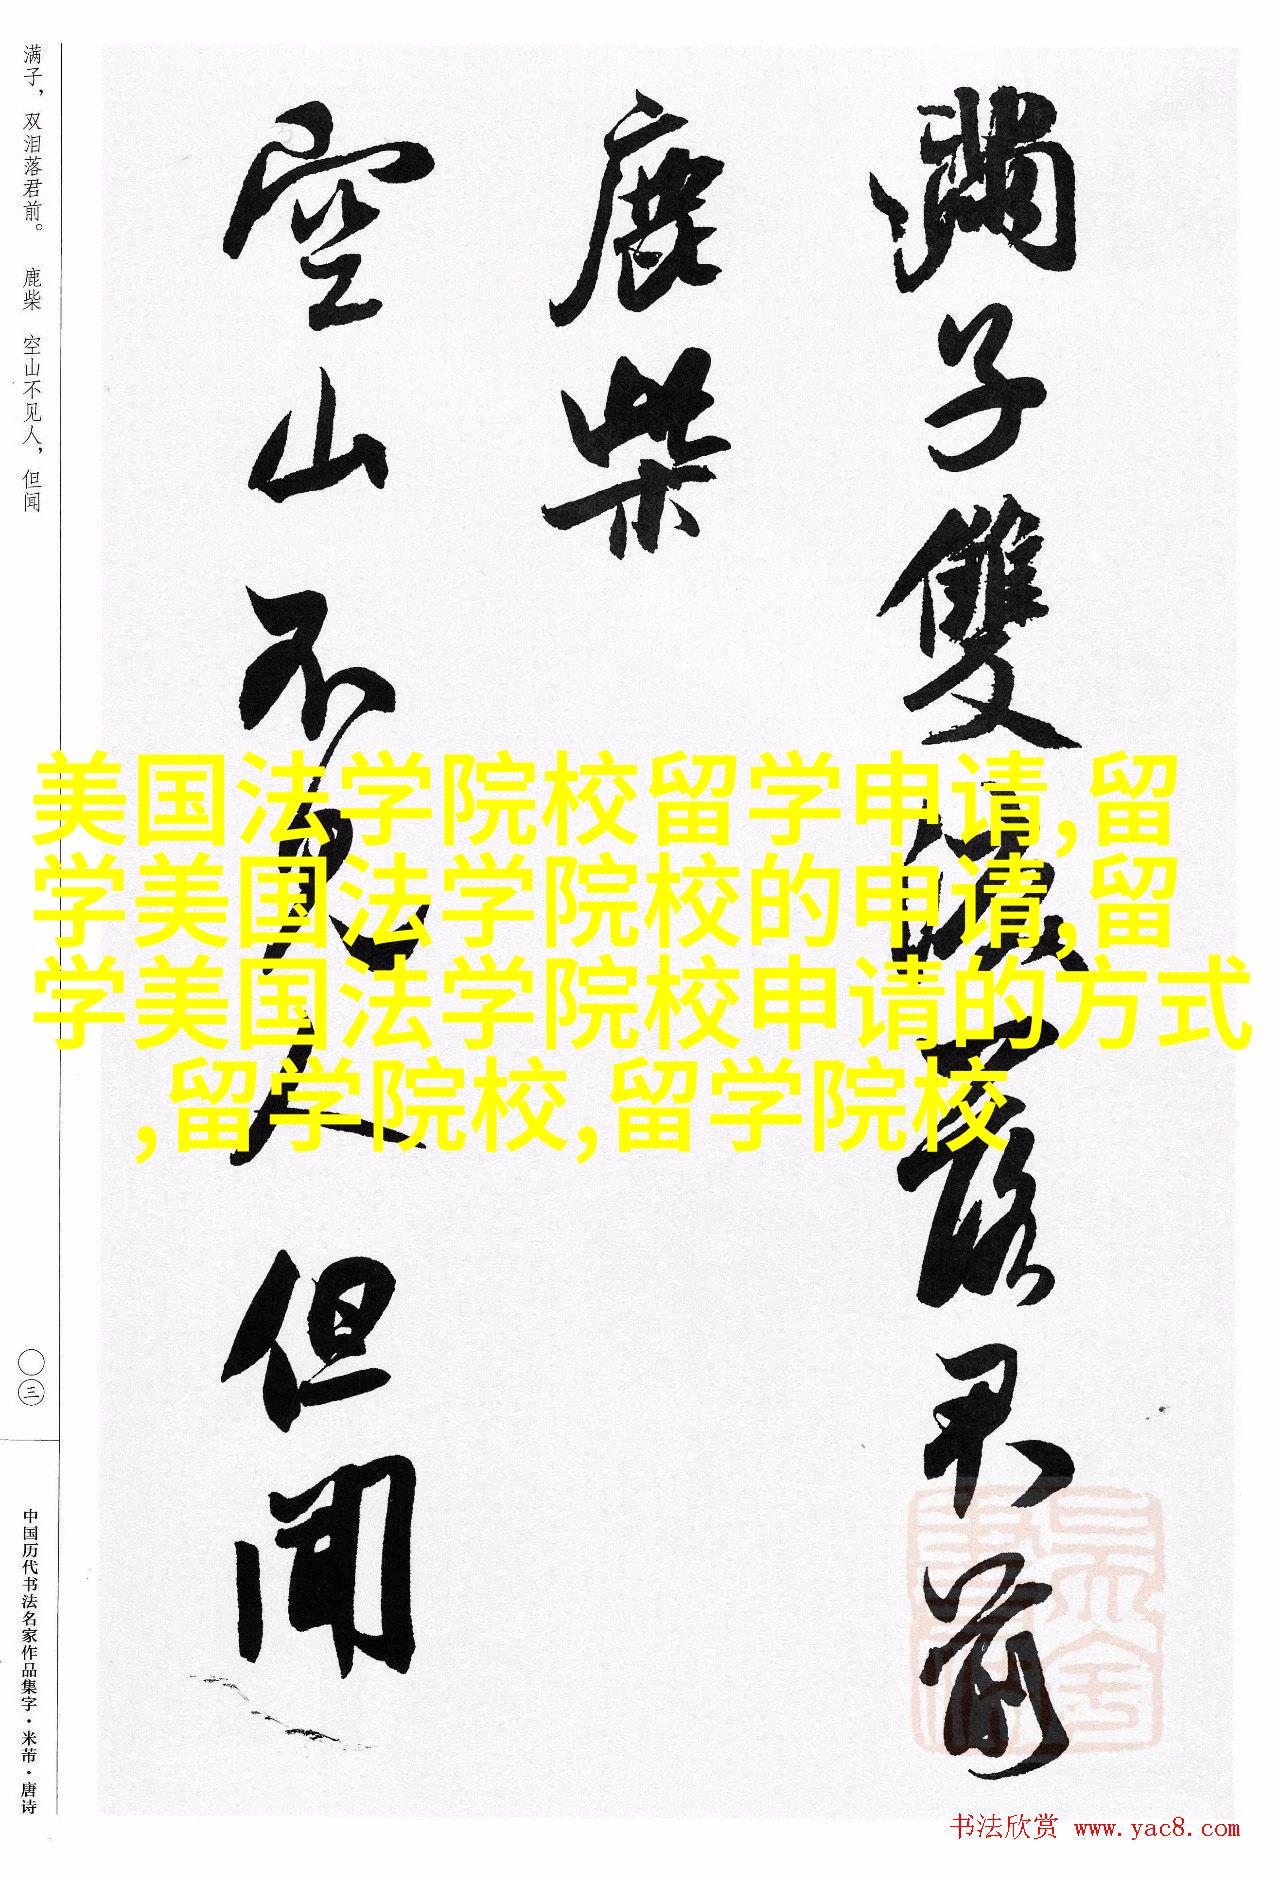 滿子雙淚落君前
鹿柴
空山不見人但聞
满子，双泪落君前。 鹿柴 空山不见人，但闻
〇三
中国历代书法名家作品集字·米芾·唐诗
美国法学院校留学申请,留
学美国法学院校的申请,留
学美国法学院校申请的方式
,留学院校,留学院校
书法欣赏 www.yac8.com